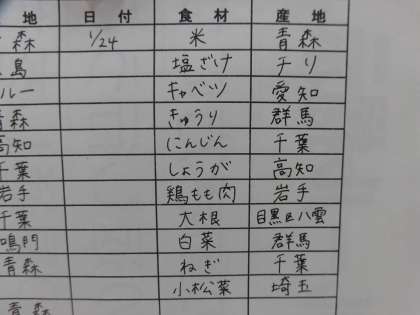 地 日付 食材 産地
青森 1/24 米 青森
島 塩ざけ チリ
ルー キャベツ 愛知
青森 きゅうり 群馬
高知 にんじん 千葉
千葉 しょうが 高知
岩手 鶏もも肉 岩手
千葉 大根 目黒区八雲
鳴門 白菜 群馬
青森 ねぎ 千葉
小松菜 埼玉
青森